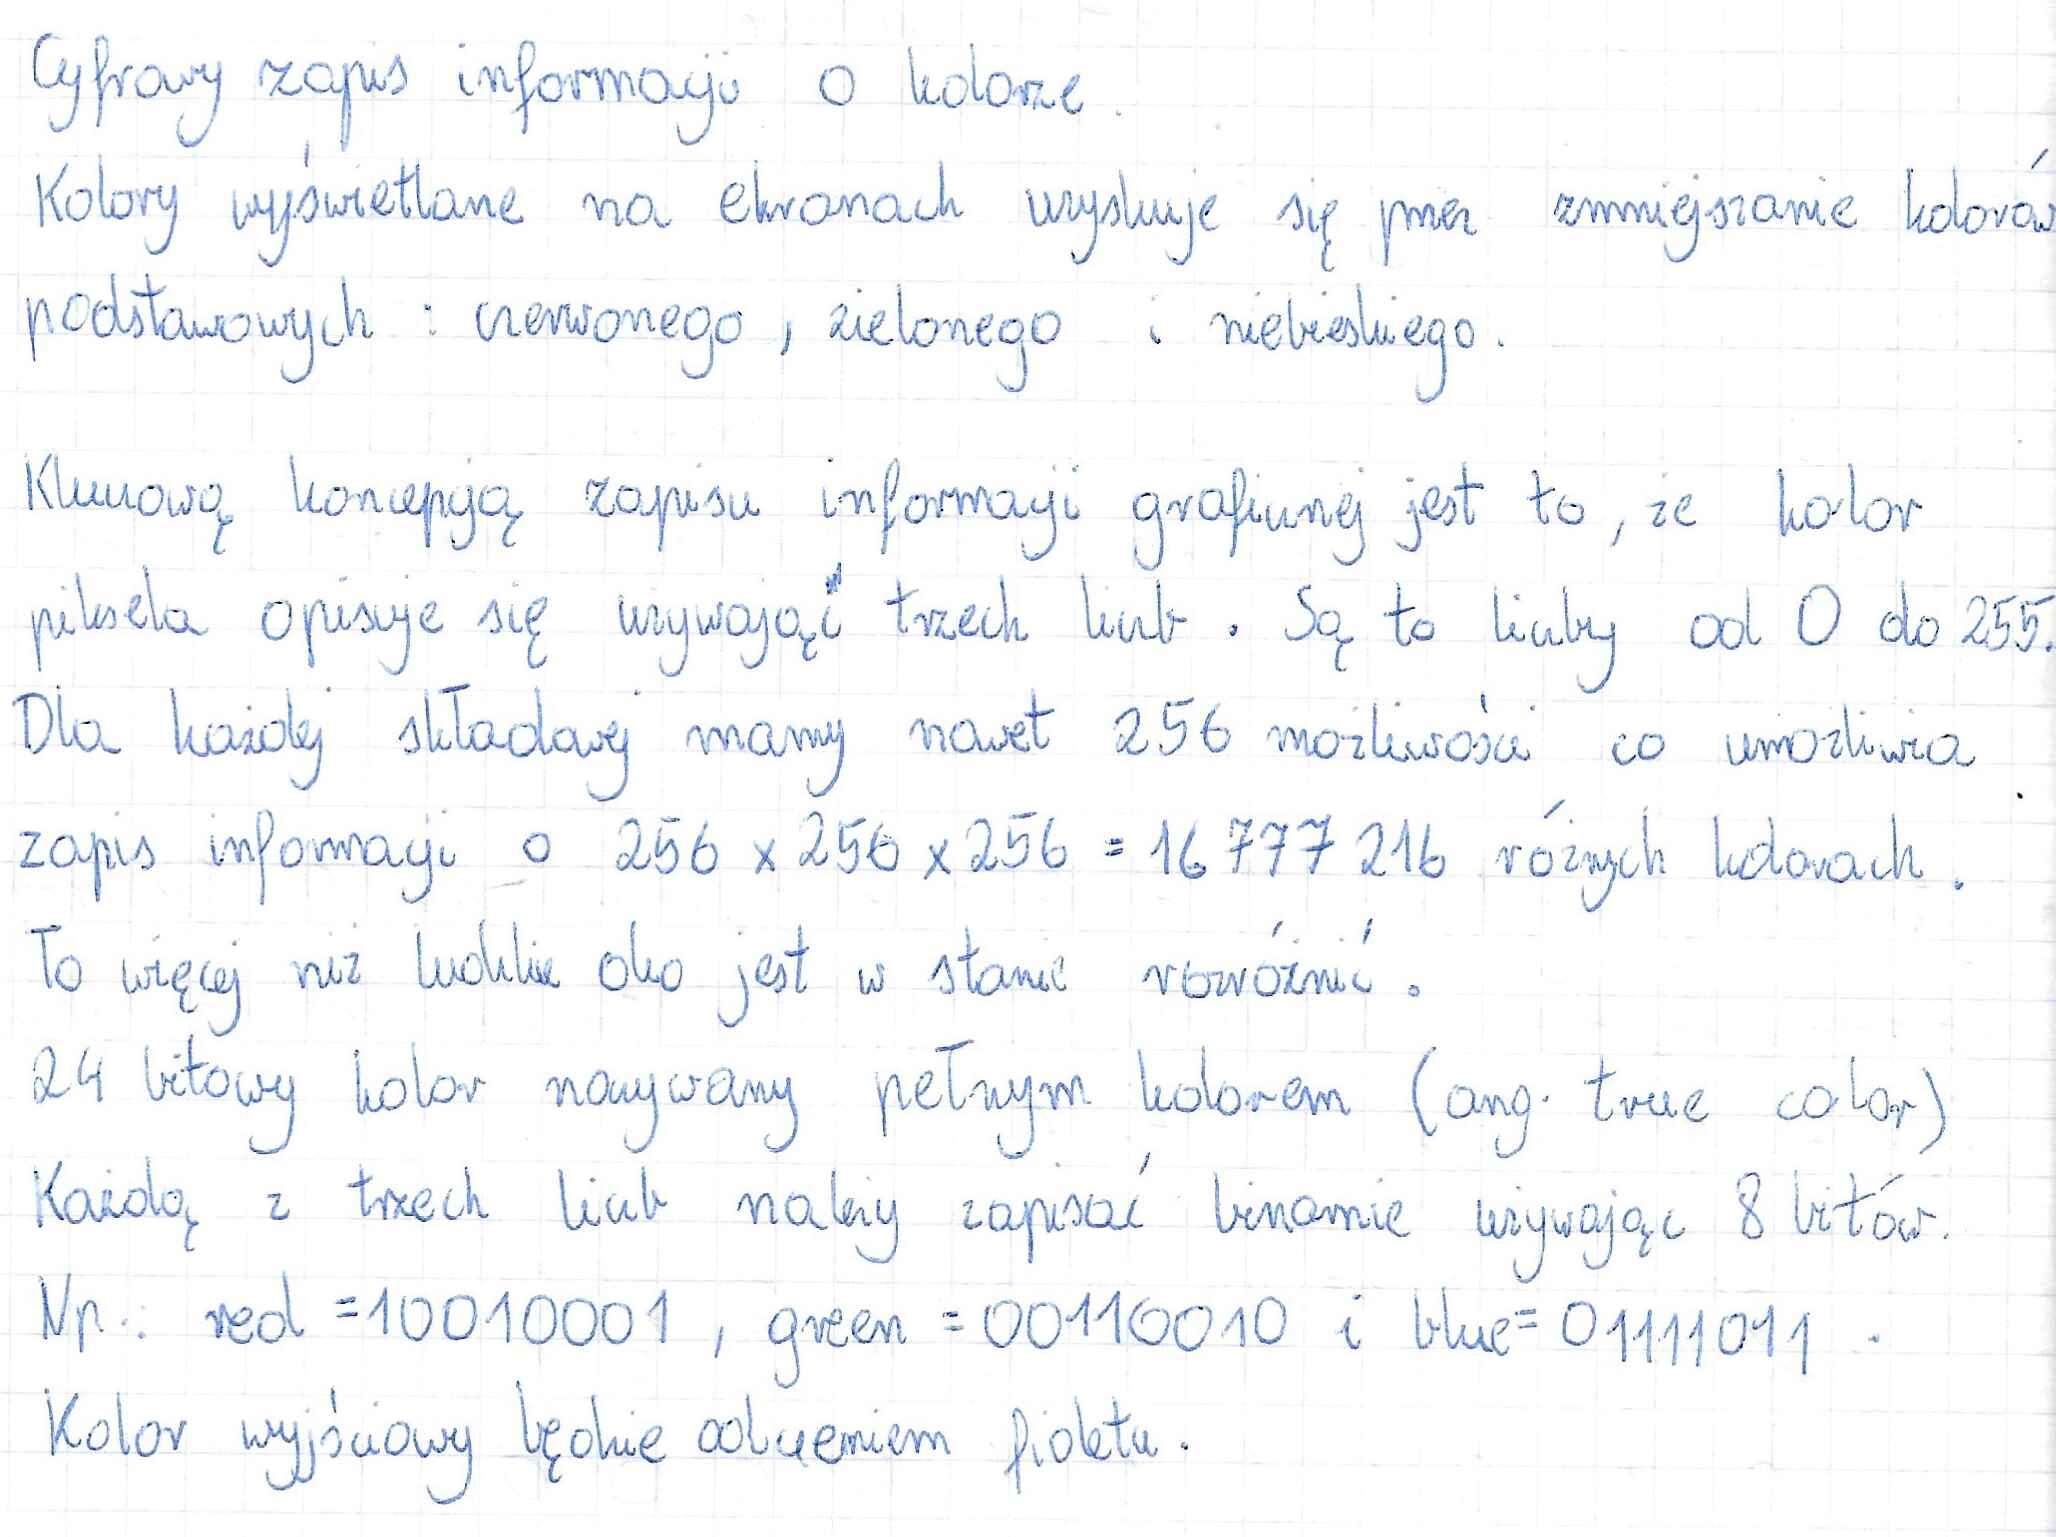 Cyfrowy zapis informacji o kolorze.
Kolory wyjświetlane na ekranach uzyskuje się przez zmniejszanie kolorów
podstawowych : czerwonego, zielonego i niebieskiego.
Kluczową koncepcją zapisu informacji graficznej jest to, że kolor
piksela opisuje się używając trzech liczb. Są to liczby od 0 do 255.
Dla każdej składowej mamy nawet 256 możliwości co umożliwia
zapis informacji o 256 x 256 x 256 = 16 777 216 różnych kolorach.
To więcej niż ludzkie oko jest w stanie rozróżnić.
24 bitowy kolor nazywany pełnym kolorem (ang. true color)
Każdą z trzech liczb należy zapisać binarnie używając 8 bitów.
Np.: red = 10010001, green = 00110010 i blue = 01111011.
Kolor wyjściowy będzie odcieniem fioletu.